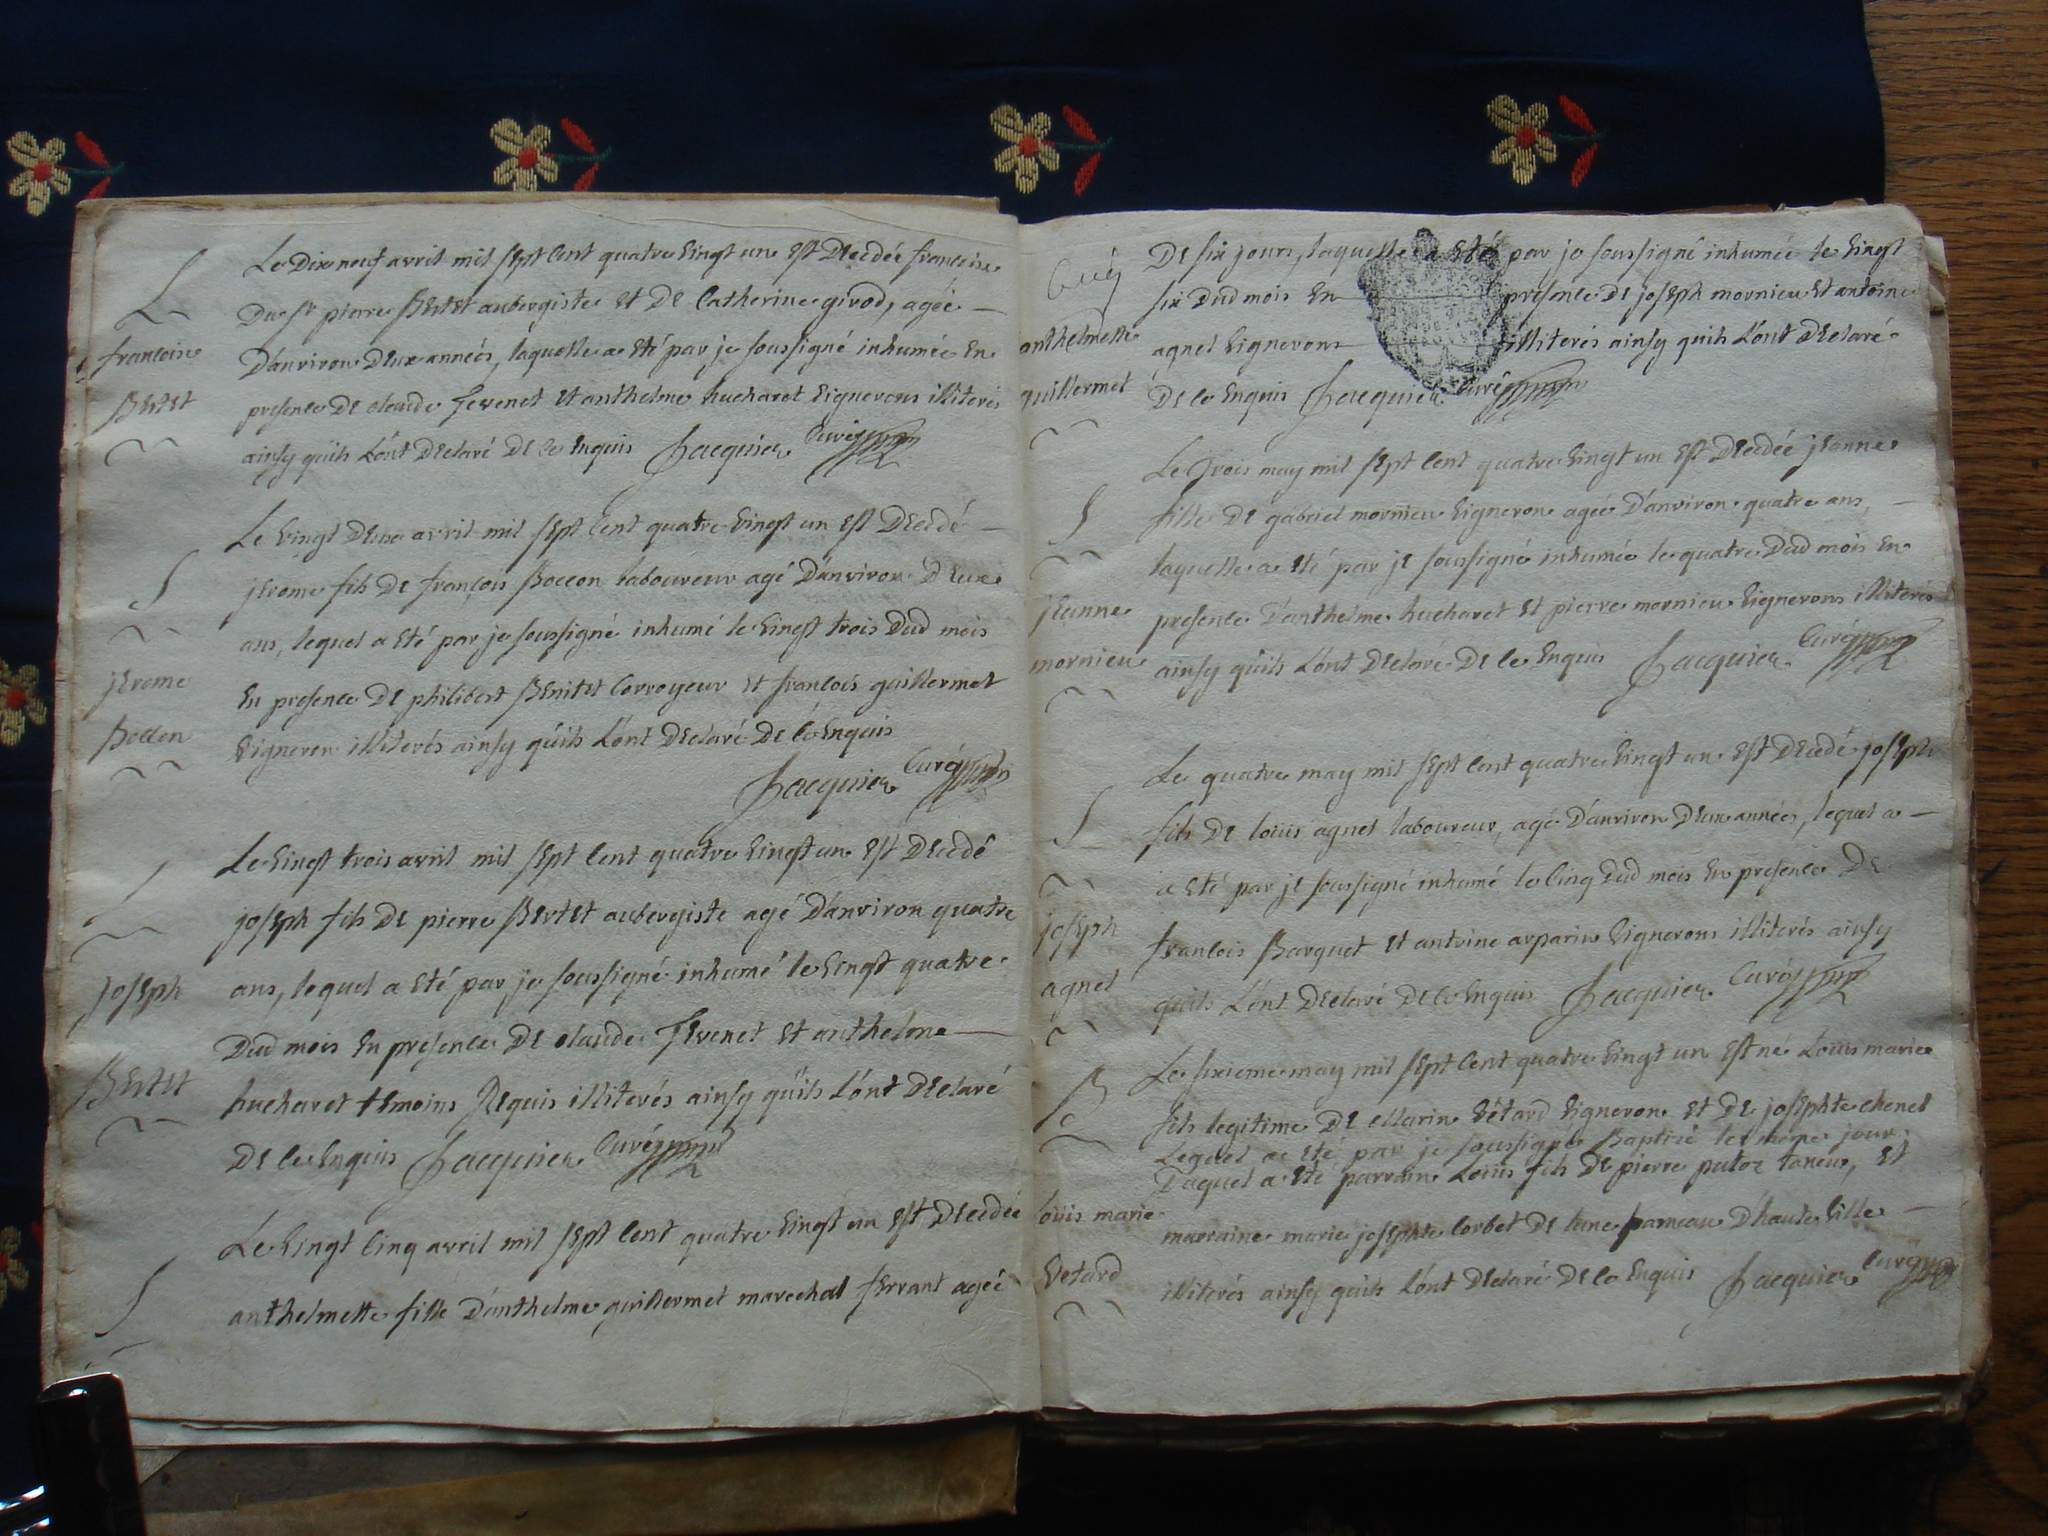 S
francoise
Bertet
Le Dix neuf avril mil sept cent quatre vingt un est Decedée francoise
Du Sr pierre Bertet aubergiste et de Catherine girod, agée
D'anviron Deux années, laquelle a eté par je soussigné inhumée en
presence de claude Tevenet et anthelme hucharet vignerons illiterés
ainsy quils L'ont Declaré De ce Enquis Jacquier Curé
S
jerome
Boccon
Le vingt Deux avril mil sept cent quatre vingt un est Decedé
jerome fils de françois Boccon laboureur agé D'anviron Deux
ans, lequel a eté par je soussigné inhumé le vingt trois Dud mois
En presence De philibert Benitet Corroyeur et francois guillermet
vigneron illiterés ainsy quils L'ont Declaré De ce Enquis
Jacquier Curé
S
joseph
Bertet
Le vingt trois avril mil sept cent quatre vingt un est Decedé
joseph fils De pierre Bertet aubergiste agé D'anviron quatre
ans, lequel a eté par je soussigné inhumé le vingt quatre
Dud mois En presence De claude Tevenet et anthelme
hucharet temoins Requis illiterés ainsy quils L'ont Declaré
De ce Enquis Jacquier Curé
S
Le vingt Cinq avril mil sept cent quatre vingt un est Decedée
anthelmette fille D'anthelme guillermet marechal ferrant agée
anthelmette
guillermet
De six jours, laquelle a eté par je soussigné inhumée le vingt
six Dud mois En presence De joseph mornieu et antoine
agnel vignerons illiterés ainsy quils L'ont Declaré
De ce Enquis Jacquier Curé
S
jeanne
mornieu
Le Trois may mil sept cent quatre vingt un est Decedée jeanne
fille De gabriel mornieu vigneron agée D'anviron quatre ans,
laquelle a eté par je soussigné inhumée le quatre Dud mois En
presence D'anthelme hucharet et pierre mornieu vignerons illiterés
ainsy quils L'ont Declaré De ce Enquis Jacquier Curé
S
joseph
agnel
Le quatre may mil sept cent quatre vingt un est Decedé joseph
fils De louis agnel laboureur, agé D'anviron Deux années, lequel a
a eté par je soussigné inhumé le Cinq Dud mois En presence De
francois Barquet et antoine arparin vignerons illiterés ainsy
quils L'ont Declaré De ce Enquis Jacquier Curé
B
Louis marie
vetard
Le sixieme may mil sept cent quatre vingt un est né Louis marie
fils legitime De Marin vétard vigneron et De josephte chenel
Lequel a eté par je soussigné Baptisé le même jour,
Duquel a eté parrain Louis fils De pierre putoz taneur, et
marraine marie josephte Corbet De hameau D'haute ville
illiterés ainsy quils L'ont Declaré De ce Enquis Jacquier Curé